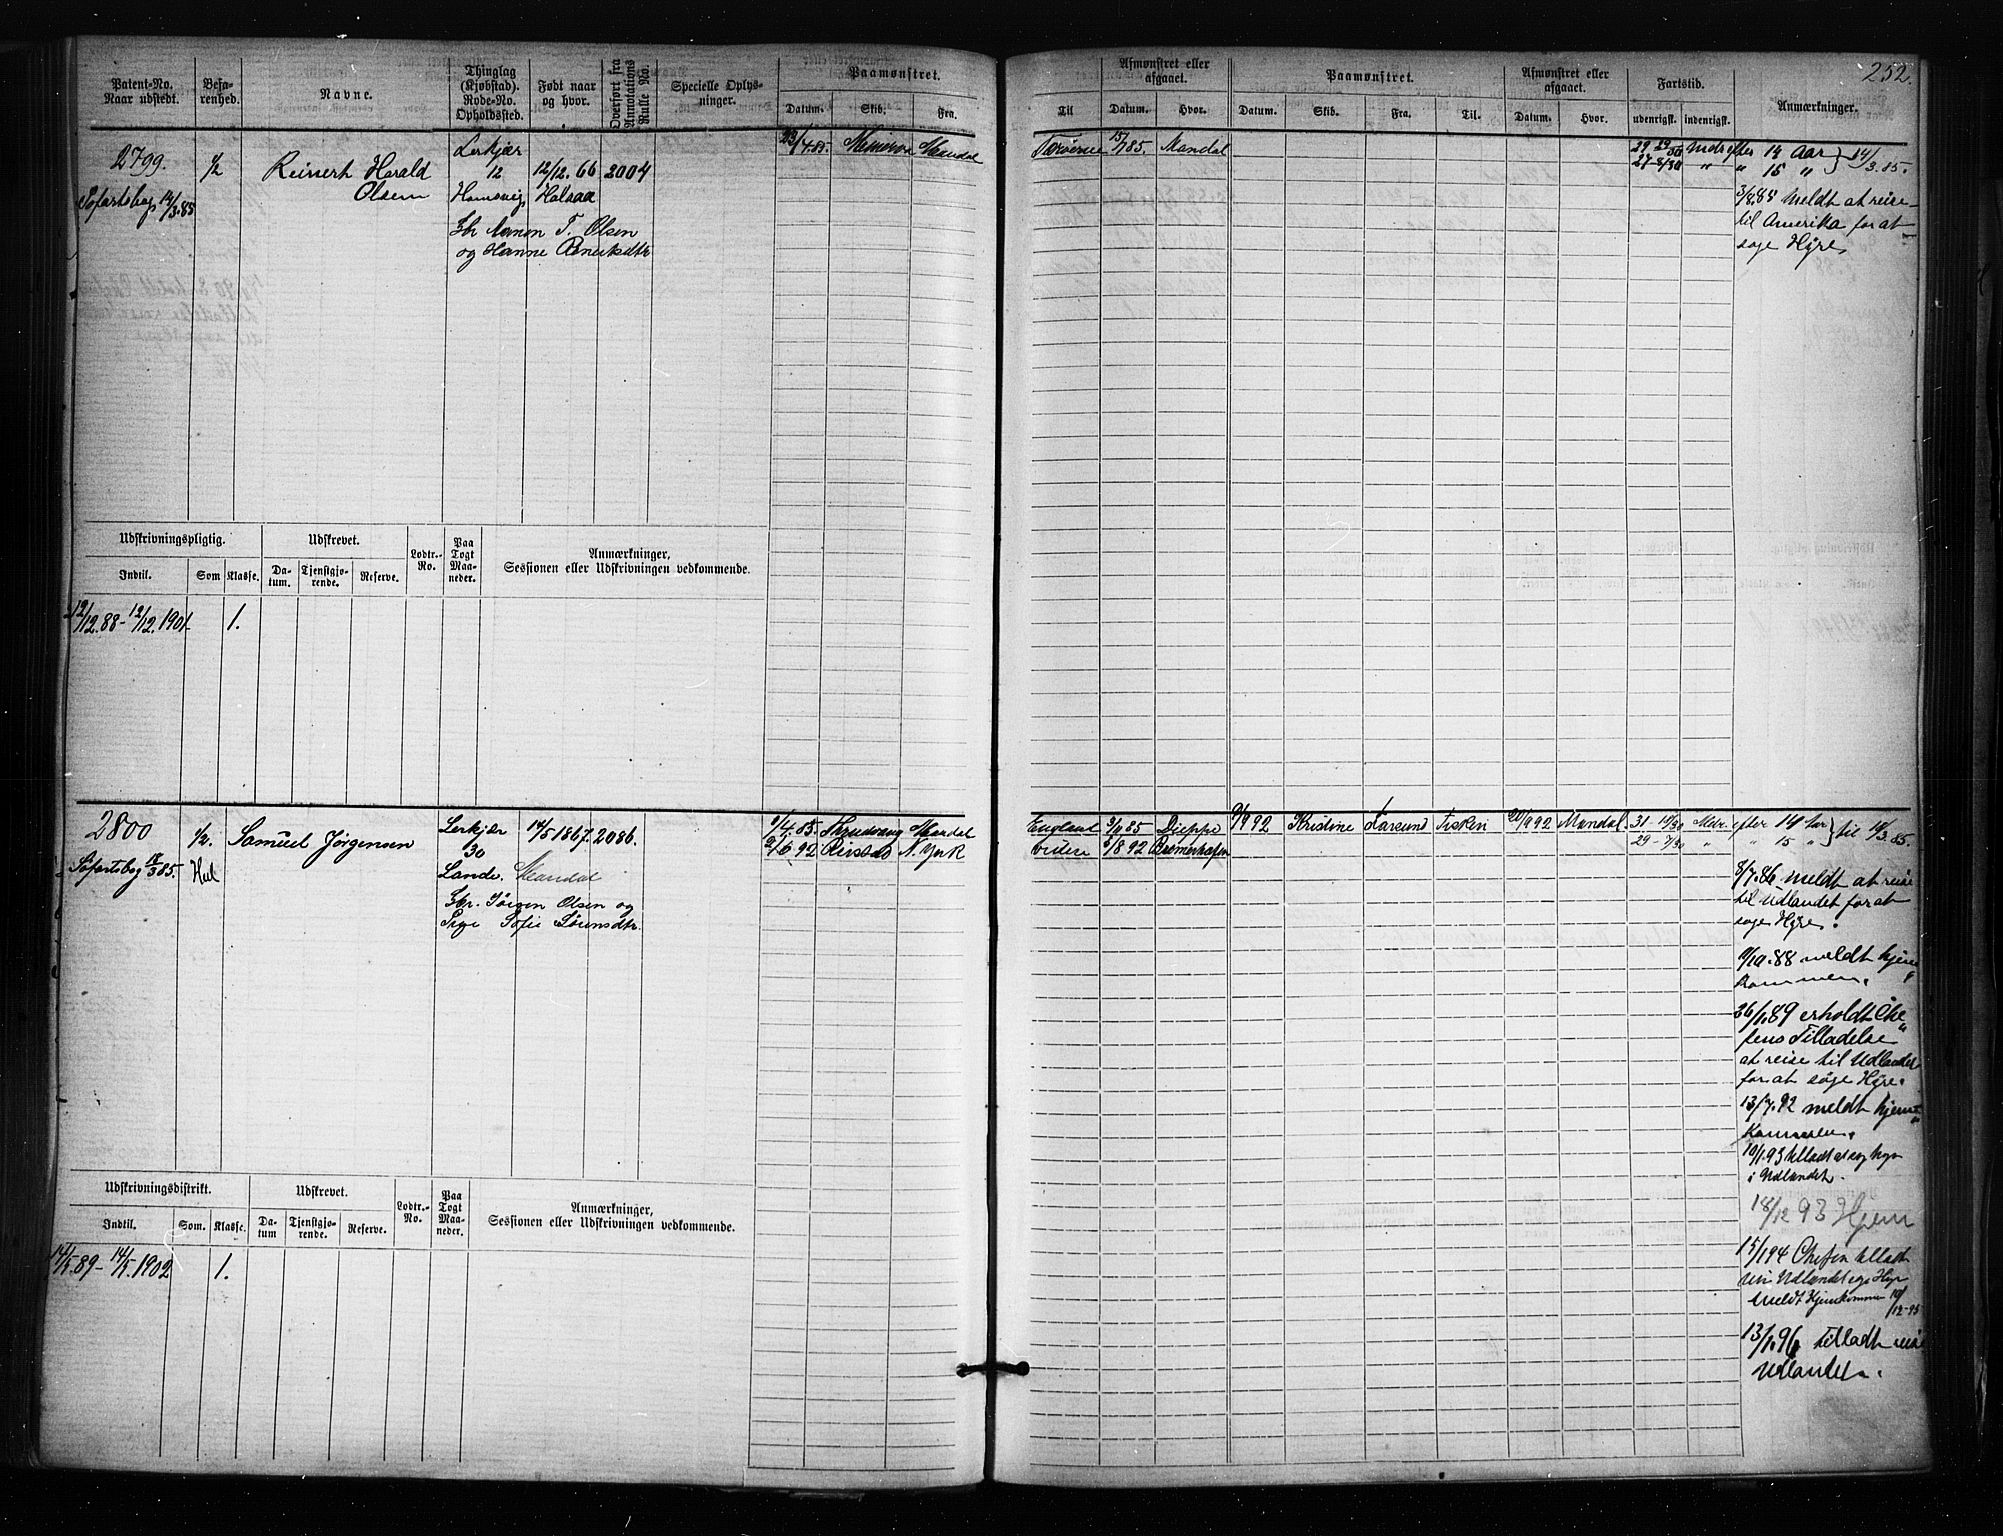 252.
Patent-No. Naar udstedt.
Befarenhed.
Navne.
Thinglag (Kjøbstad). Rode-No. Opholdssted.
Født naar og hvor.
Overført fra Annotations Rulle No.
Specielle Oplysninger.
Paamønstret.
Datum. Skib. Fra.
Til
Afmønstret eller afgaaet.
Datum. Hvor.
Paamønstret.
Datum. Skib. Fra. Til.
Afmønstret eller afgaaet.
Datum. Hvor.
Fartstid.
udenrigsk. indenrigsk.
Anmærkninger.
2799.
Søfartsbog 14/3.85
1/2
Reinert Harald
Olsen
Lerkjær
12
12/12. 66
2004
Halsaa
T. Olsen
og Hanne
23/4.85. Minerva Mandal
85. Mandal
efter 14 Aar
" 15 "
14/3.85.
meldt at reise
til Amerika for at
søge Hyre
Udskrivningspligtig.
Indtil. Som Klasse.
Udskrevet.
Datum. Tjenstgjørende. Reserve.
Lodtr.-No.
Paa Togt Maaneder.
Anmærkninger,
Sessionen eller Udskrivningen vedkommende.
12/12.88 - 12/12.1901. 1.
2800
Søfartsbog 85.
1/2.
Samuel Jørgensen
Lerkjær
30
Mandal
14/5 1867.
2086.
Jørgen Olsen og
Sofie Sørensdtr.
4.85. Mandal
6.92 N. York
England 85 Dieppe
8 92 Bremerhafen
9/8 92 Kristine Farsund Fiskeri
20/9 92 Mandal
31
29
efter 14 Aar
" 15 "
til 3.85.
3/7.86 meldt at reise
til Udlandet for at
søge Hyre.
10.88 meldt hjem
kommen.
26/1.89 erholdt Che
fens Tilladelse
at reise til Udlandet
for at søge Hyre.
13/7.92 meldt hjem
kommen.
10/1.93 tilladt at søg hyre
i Udlandet.
18/12 93 Hjem
15/1 94 Chefen tilladt
Udlandet søge Hyre
Meldt Hjemkommen 10/12-95
13/1.96 tilladt reise
Udlandet.
Udskrivningsdistrikt.
Indtil. Som. Klasse.
Udskrevet.
Datum Tjenstgjørende. Reserve.
Lodtr.-No.
Paa Togt Maaneder.
Anmærkninger,
Sessionen eller Udskrivningen vedkommende.
14/5.89 - 14/5.1902 1.